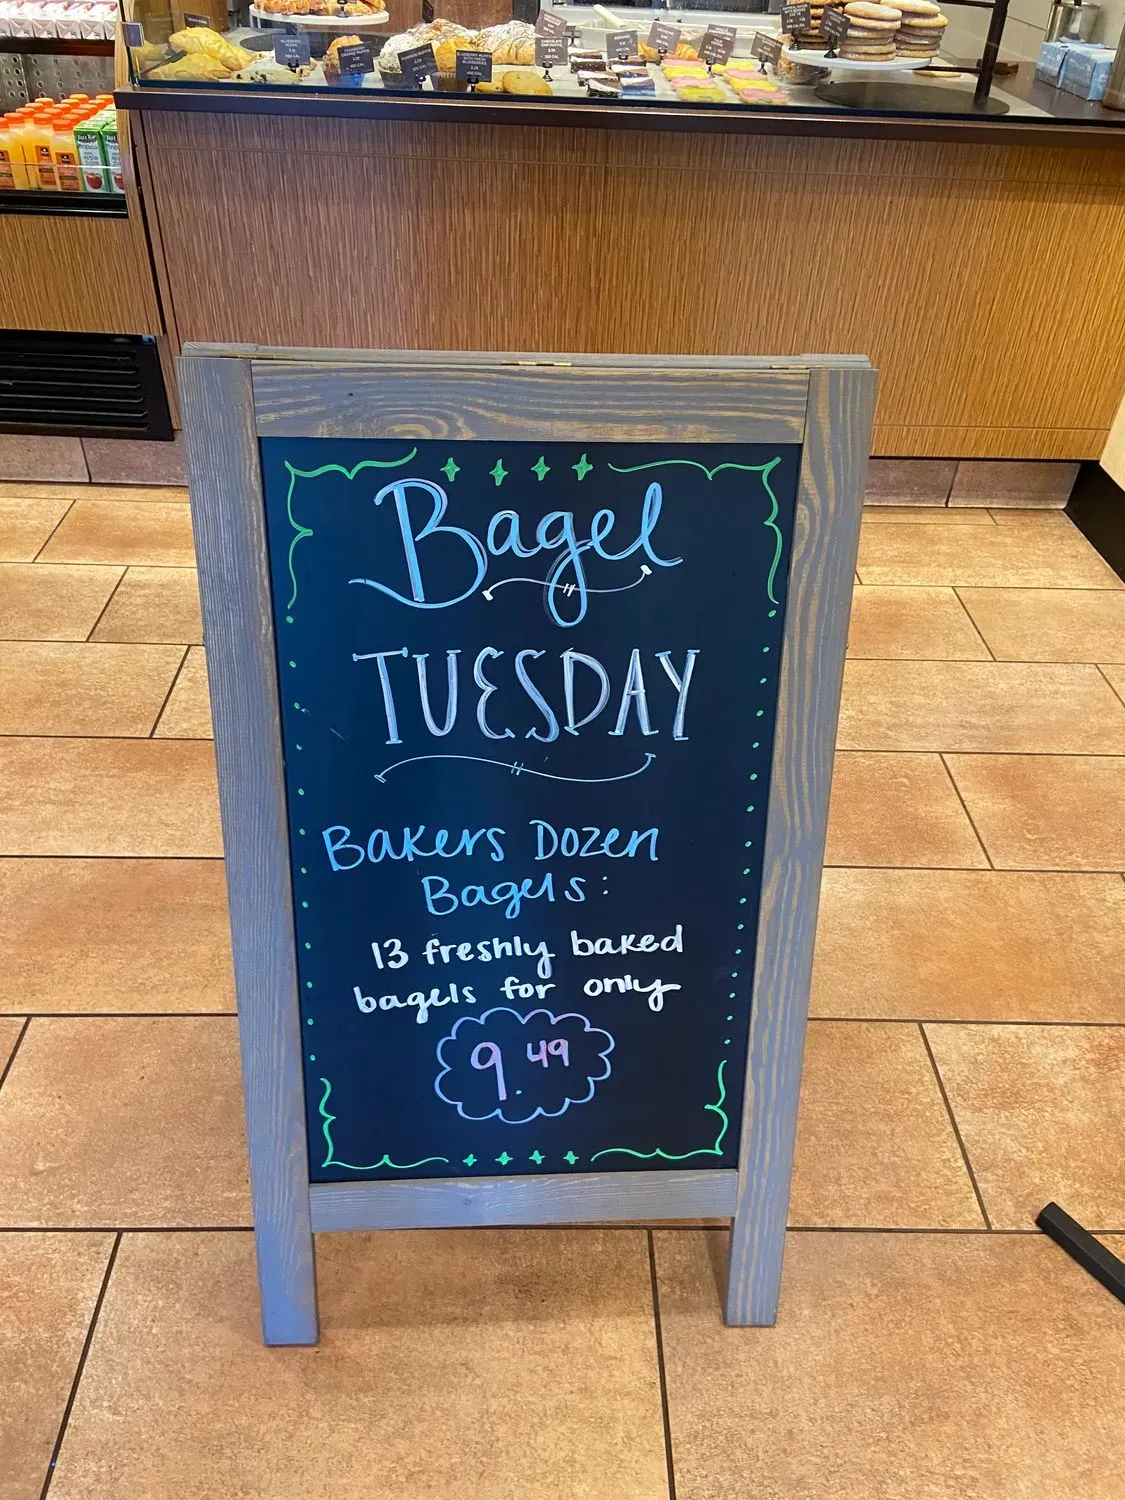 Bagel
TUESDAY
Bakers Dozen
Bagels:
13 freshly baked
bagels for only
9.49